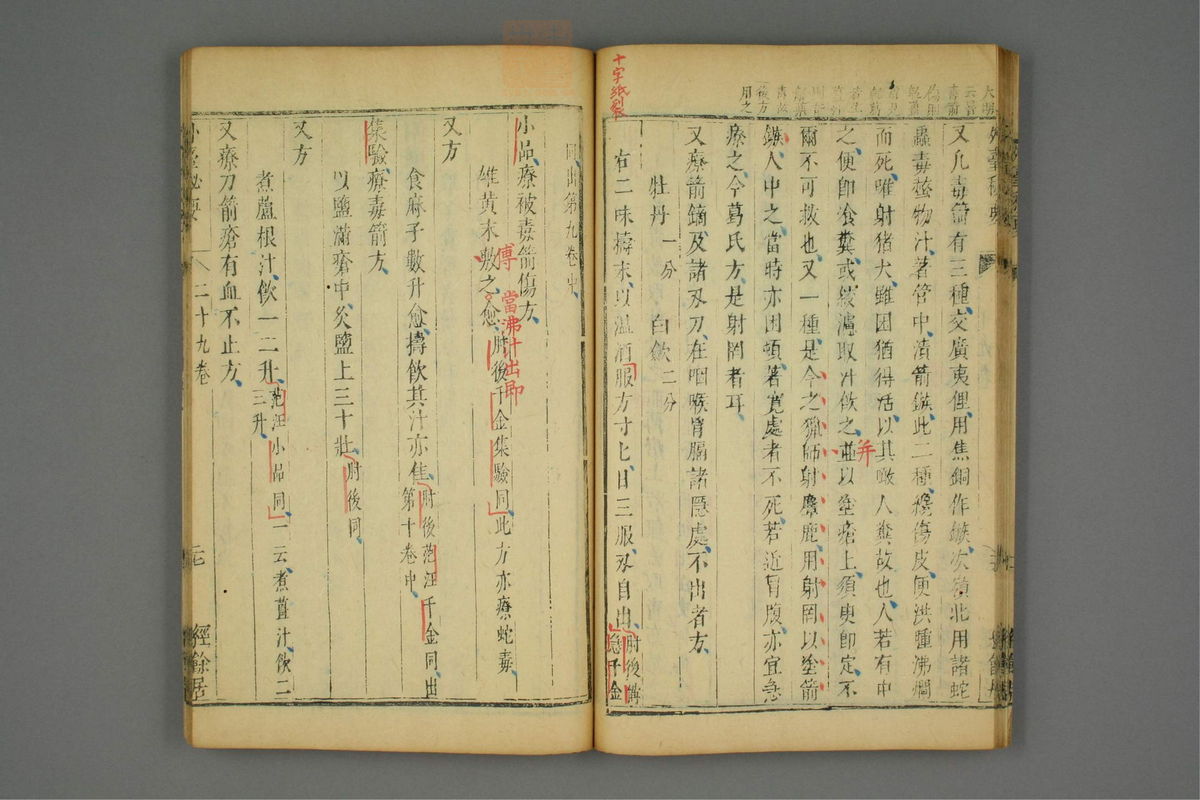 又凡毒箭有三種交廣夷俚用焦銅作鏃次嶺北用諸蛇
蟲毒螫物汁著管中漬箭鏃此二種纔傷皮便洪腫沸爛
而死唯射猪犬雖困猶得活以其噉人糞故也人若有中
之便卽飡糞或絞濾取汁飲之並以塗瘡上須臾卽定不
爾不可救也又一種是今之獵師射麞鹿用射罔以塗箭
鏃人中之當時亦困頓著寛處者不死若近胷腹亦宜急
療之今葛氏方是射罔者耳
又療箭鏑及諸刄刀在咽喉胷膈諸隱處不出者方
牡丹一分 白歛二分
右二味擣末以溫酒服方寸匕日三服刄自出肘後備
急千金
十字紙裂
後方
用之
同出第九卷中
小品療被毒箭傷方
雄黄末敷之愈肘後千金集驗同此方亦療蛇毒
傅
當沸汁出卽
又方
食麻子數升愈擣飲其汁亦佳肘後范汪千金同出
第十卷中
集驗療毒箭方
以鹽滿瘡中灸鹽上三十壯肘後同
又方
煮蘆根汁飲一二升范汪小品同一云煮葍汁飲二
三升
又療刀箭瘡有血不止方
二十九卷
經餘居
并